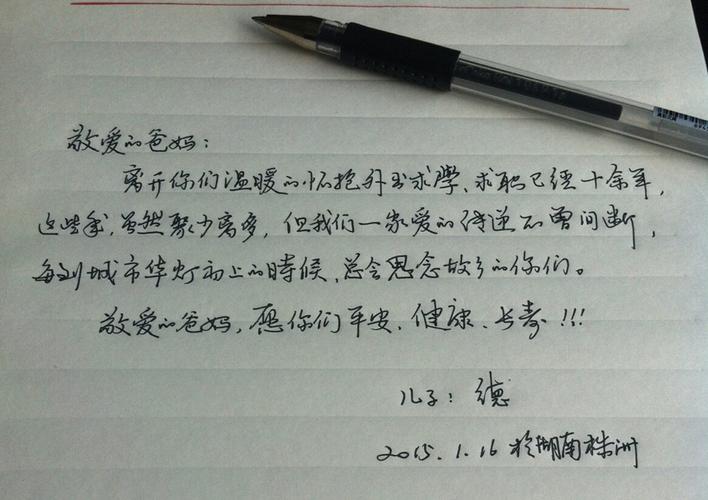 敬爱的爸妈：
离开你们温暖的怀抱外出求學、求职已经十余年，
这些年，虽然聚少离多，但我们一家爱的传递不曾间断，
每到城市华灯初上的時候，总会思念故乡的你们。
敬爱的爸妈，愿你们平安、健康、长寿!!!
儿子：德
2015.1.16 於湖南株洲